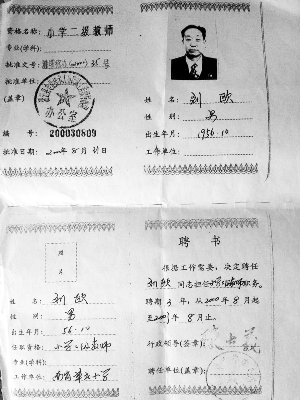 资格名称: 小学二级教师
专业(学科):
批准文号:
批准单位:
(盖章)
办公室
编 号: 200030809
批准日期: 2000年8月31日
姓 名: 刘欧
性 别: 男
出生年月: 1956.10
工作单位:
照
片
姓 名: 刘欧
性 别: 男
出生年月: 56.10
任职资格: 小学二级教师
专业(学科):
工作单位:
聘 书
根据工作需要,决定聘任
刘欧 同志担任小学二级教师职务。
聘期3年,从2000年8月起
至2003年8月止。
行政领导(签章):
聘任单位(盖章):